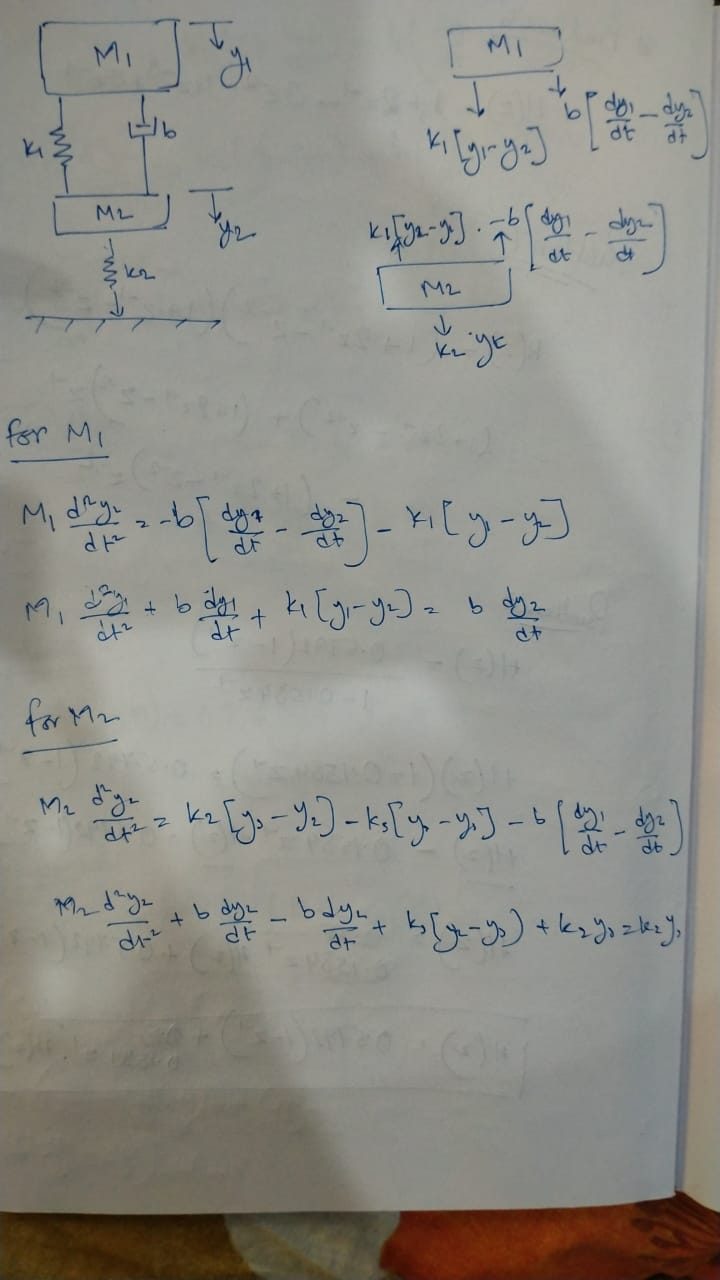 M₁ y₁
K₁ b
M₂ y₂
K₂
M₁
K₁[y₁-y₂] b[dy₁/dt - dy₂/dt]
K₁[y₂-y₁] . -b[dy₁/dt - dy₂/dt]
M₂
K₂
for M₁
M₁ d²y₂/dt² = -b[dy₁/dt - dy₂/dt] - K₁[y₁-y₂]
M₁ d²y₁/dt² + b dy₁/dt + k₁[y₁-y₂] = b dy₂/dt
for M₂
M₂ d²y₂/dt² = k₂[y₃-y₂] - k₃[y₂-y₃] - b[dy₁/dt - dy₂/dt]
M₂ d²y₂/dt² + b dy₂/dt - b dy₂/dt + k₃[y₂-y₃) + k₂y₃ = k₂y₃